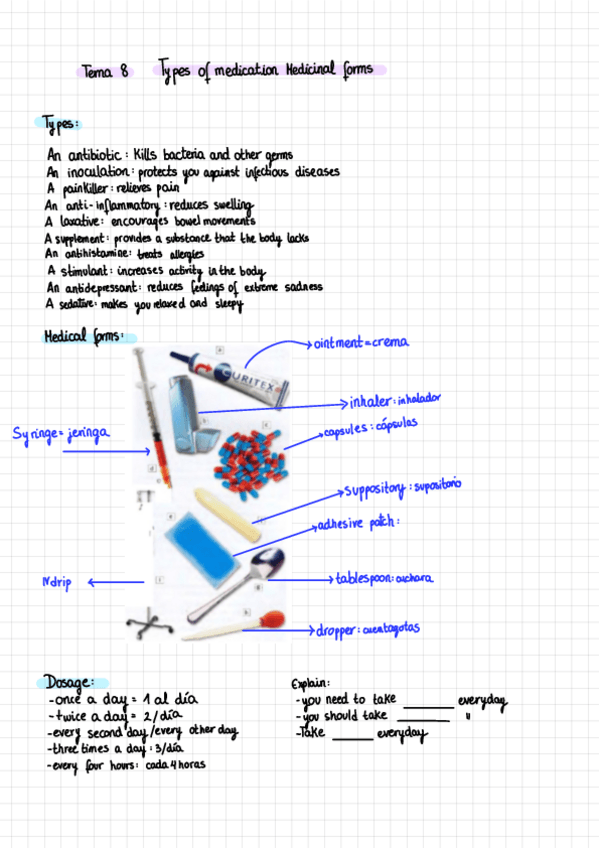 Tema 8 Types of medication Medicinal forms
Types:
An antibiotic: Kills bacteria and other germs
An inoculation: protects you against infectious diseases
A painkiller: relieves pain
An anti-inflammatory: reduces swelling
A laxative: encourages bowel movements
A supplement: provides a substance that the body lacks
An antihistamine: treats allergies
A stimulant: increases activity in the body
An antidepressant: reduces feelings of extreme sadness
A sedative: makes you relaxed and sleepy
Medical forms:
ointment=crema
CURITEX
inhaler: inhalador
capsules: cápsulas
Syringe= jeringa
suppository: supositorio
adhesive patch:
IVdrip
tablespoon: cuchara
dropper: cuentagotas
Dosage:
-once a day = 1 al día
-twice a day = 2/día
-every second day/every other day
-three times a day: 3/día
-every four hours: cada 4 horas
Explain:
-you need to take ______ everyday
-you should take ______ "
-Take ______ everyday